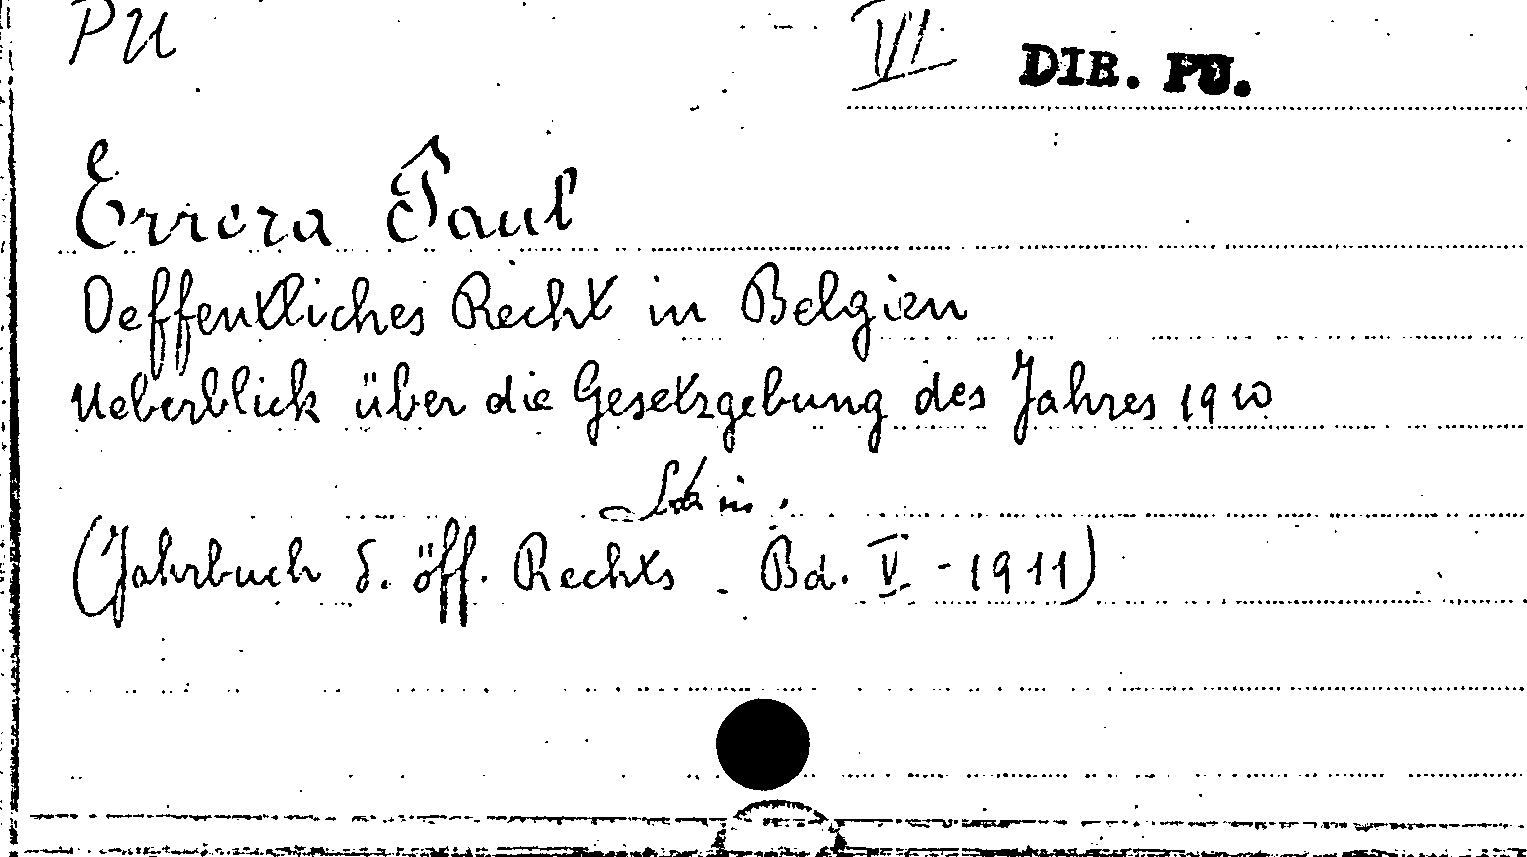 PU VI DIR. PU.
Errera Paul
Oeffentliches Recht in Belgien
Ueberblick über die Gesetzgebung des Jahres 1910
Sta in.
(Jahrbuch d. öff. Rechts - Bd. V - 1911)